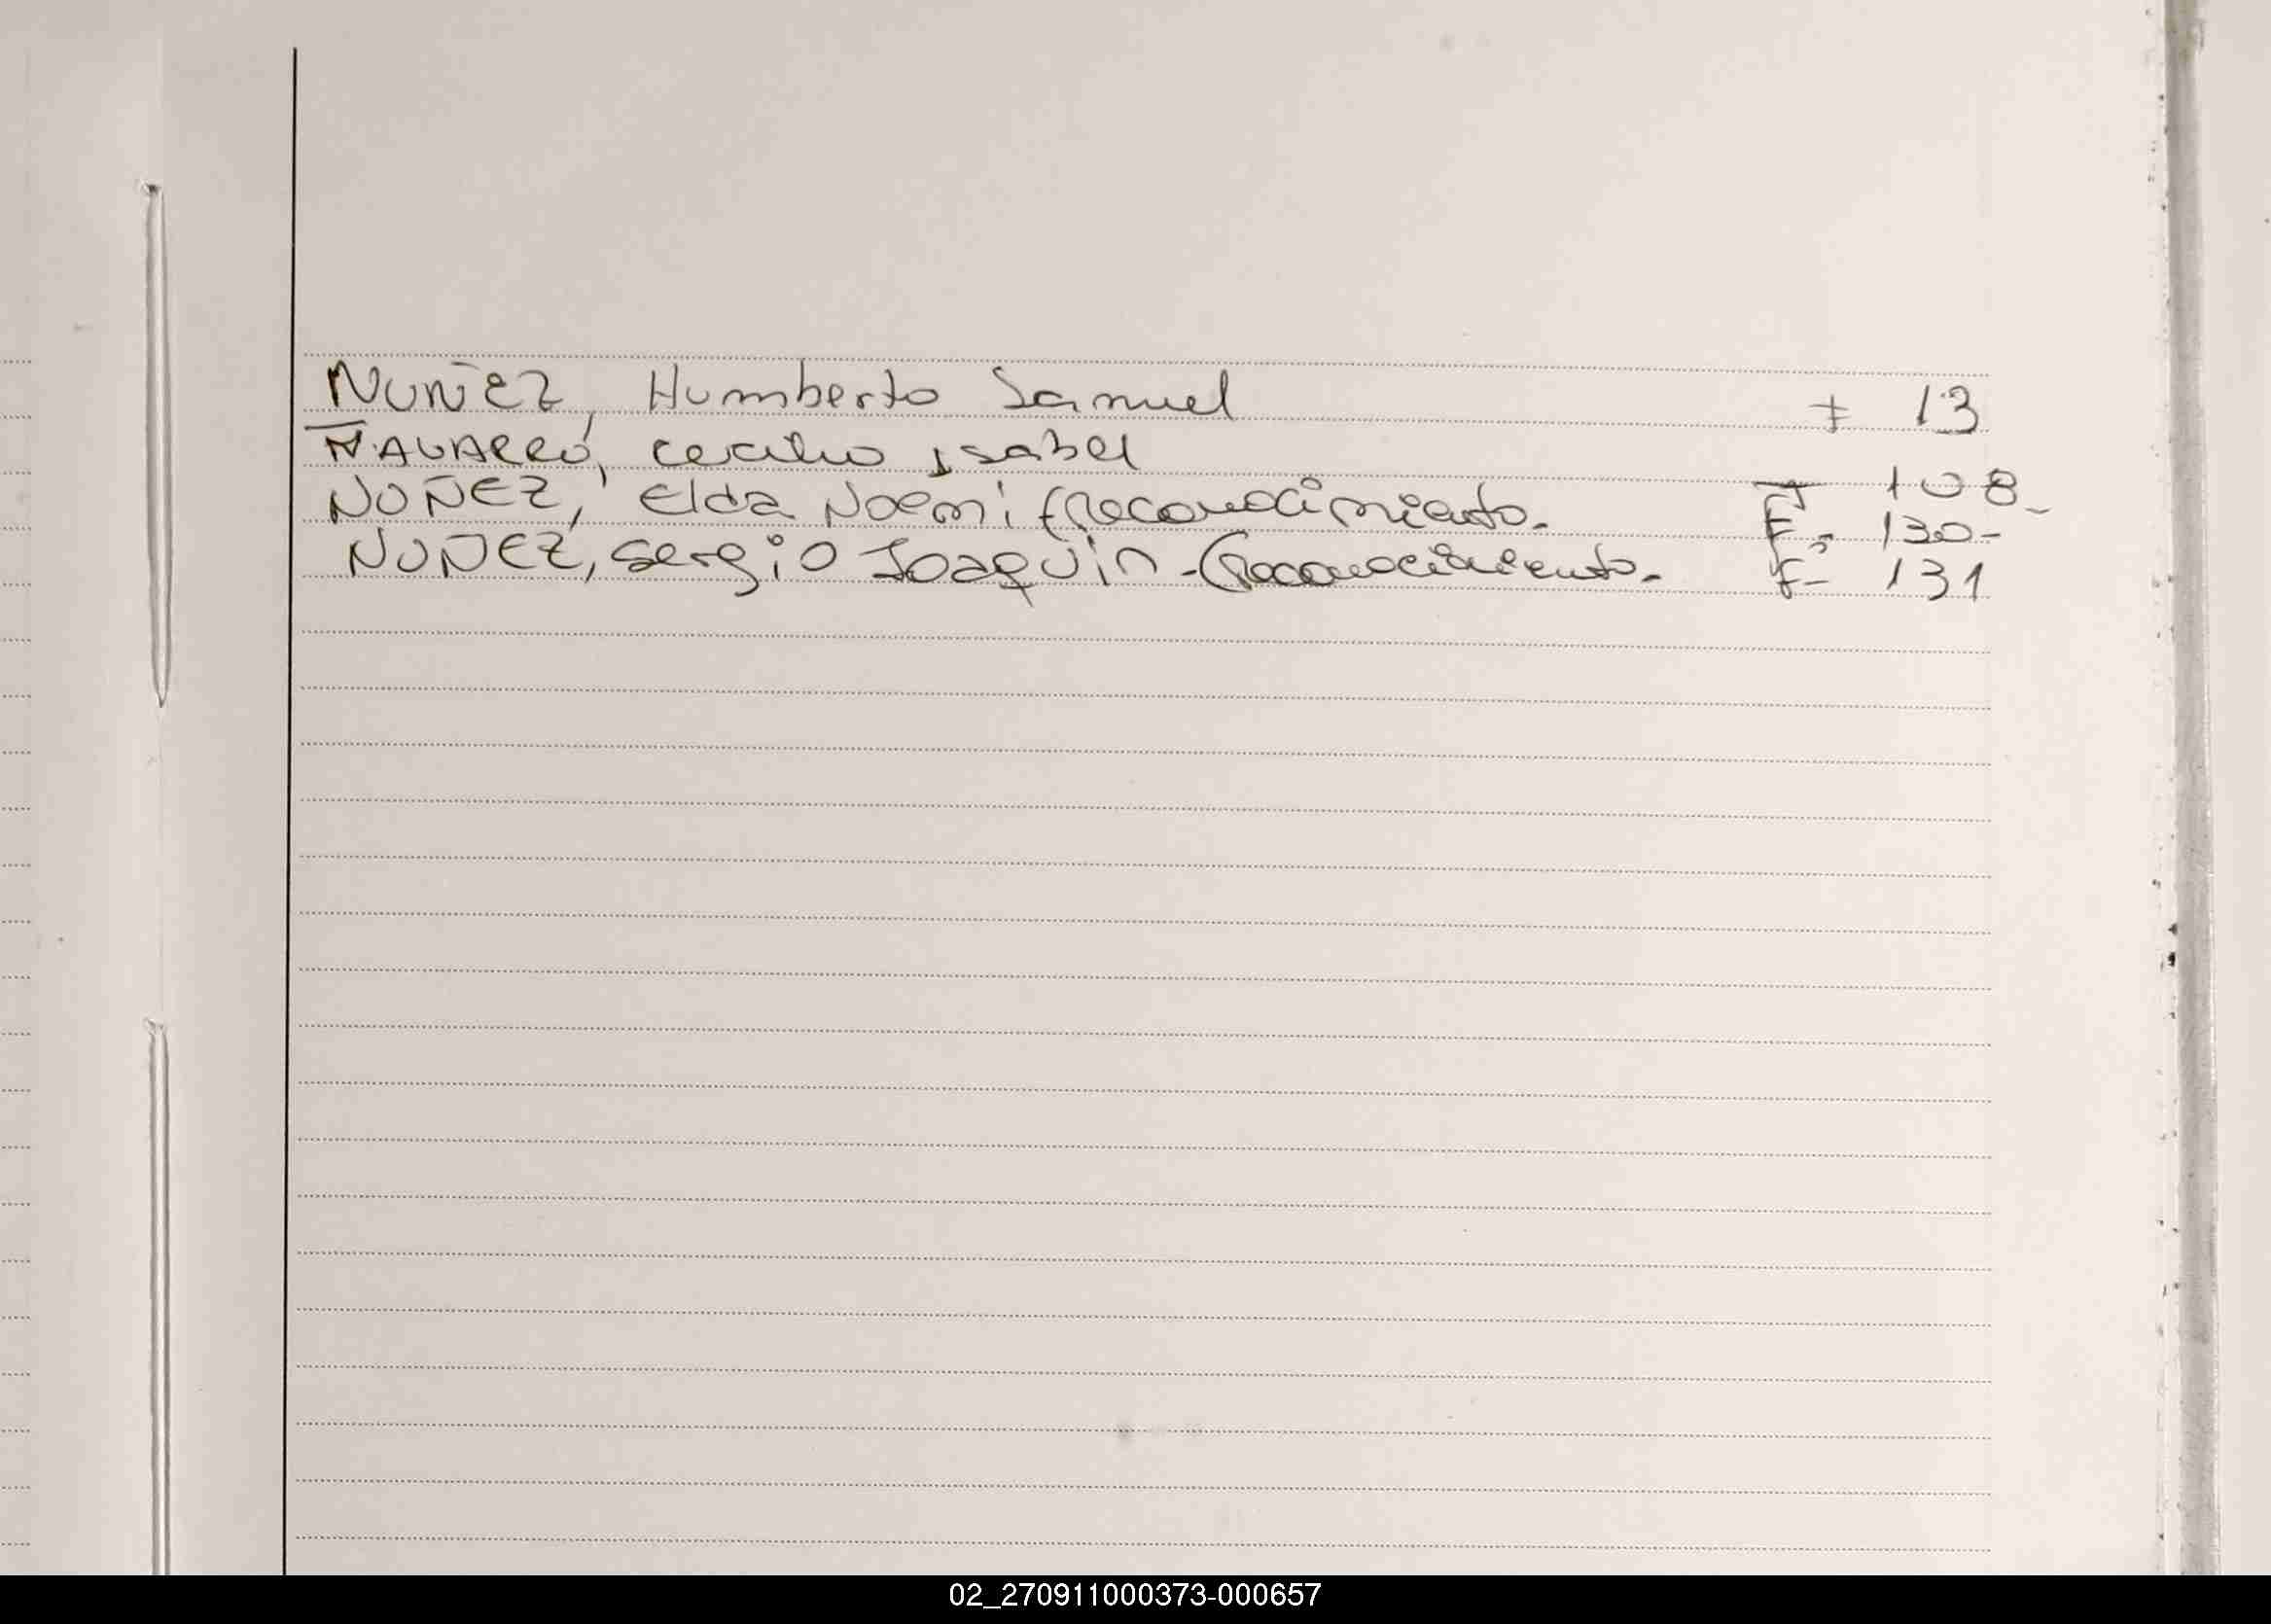 NUÑEZ, Humberto Samuel F 13
NAVARRO, Isabel F 108-
NUÑEZ, Elda Noemi (Reconocimiento. F- 130-
NUÑEZ, Sergio Joaquin-(Reconocimiento. F- 131
02_270911000373-000657